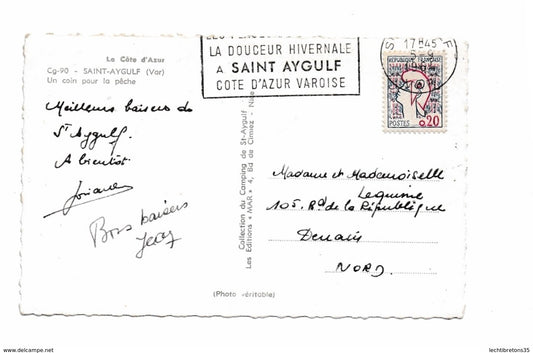 La Côte d'Azur
Cg-90 - SAINT-AYGULF (Var)
Un coin pour la pêche
Meilleurs baisers de
St Aygulf.
A bientôt
Josiane
Bons baisers
Collection du Camping de St-Aygulf
Les Editions "MAR" 4, Bd de Cimiez - Nice
(Photo véritable)
LA DOUCEUR HIVERNALE
A SAINT AYGULF
COTE D'AZUR VAROISE
17H45
5-9
1964
REPUBLIQUE FRANÇAISE
POSTES 0,20
Madame et Mademoiselle
Lequime
105. Rd de la République
Denain
NORD.
lechtibretons35